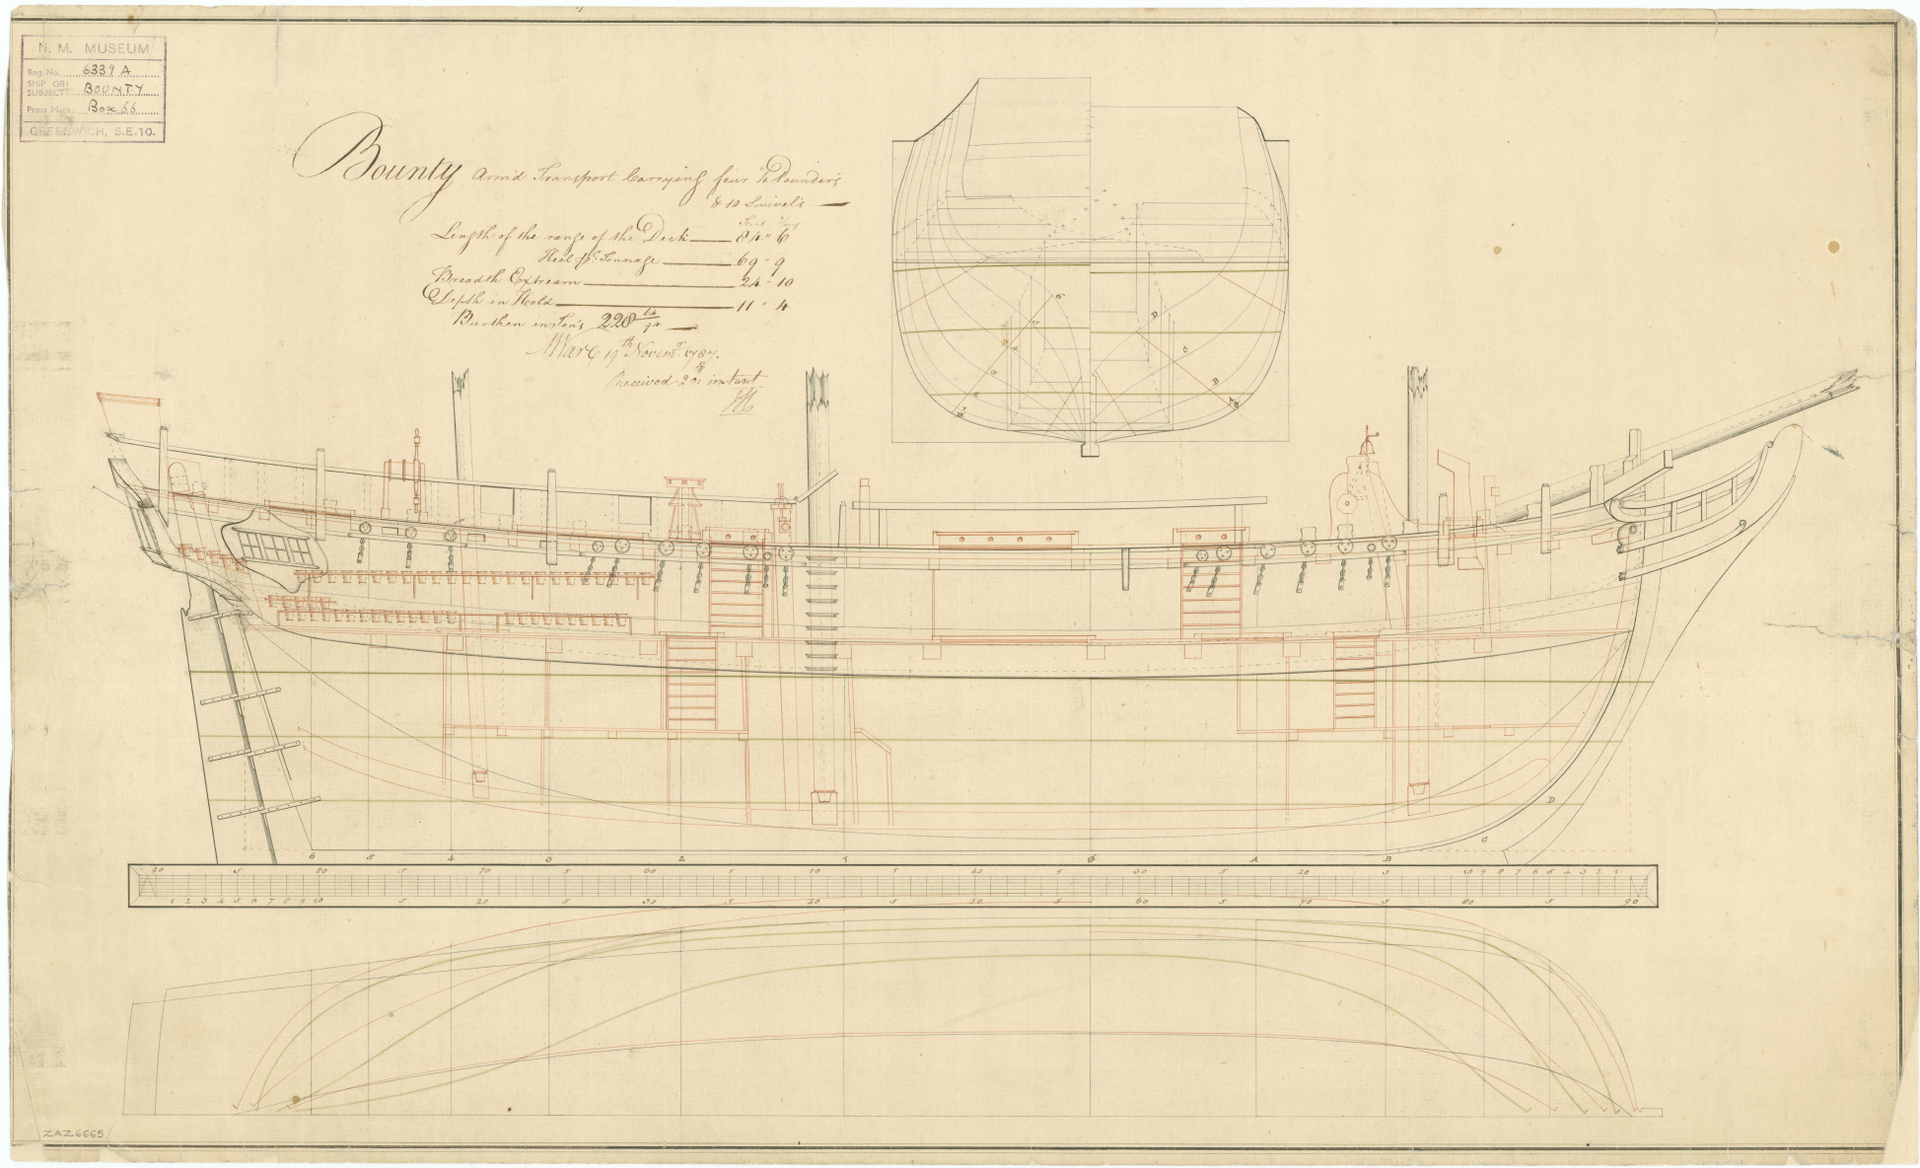 N. M. MUSEUM
Reg. No. 6339 A
SHIP OR SUBJECT: BOUNTY
Press Mark. Box 66
GREENWICH, S.E.10.
Bounty Arm'd Transport Carrying four Pounders
& 10 Swivel's
Length of the range of the Deck 84 - 6
Keel for Tonnage 69 - 9
Breadth Extream 24 - 10
Depth in Hold 11 - 4
Burthen in Ton's 220
19th Novemr 1787.
Received 20th instant
6 G
D
C
B
A
D
C
6 5 4 3 2 1 A B
90 5 80 5 70 5 60 5 50 5 40 5 30 5 20 5 10 9 8 7 6 5 4 3 2 1
1 2 3 4 5 6 7 8 9 10 5 20 5 30 5 40 5 50 5 60 5 70 5 80 5 90
ZAZ6665